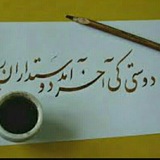 دوستی کی آخر آمد دوستداران